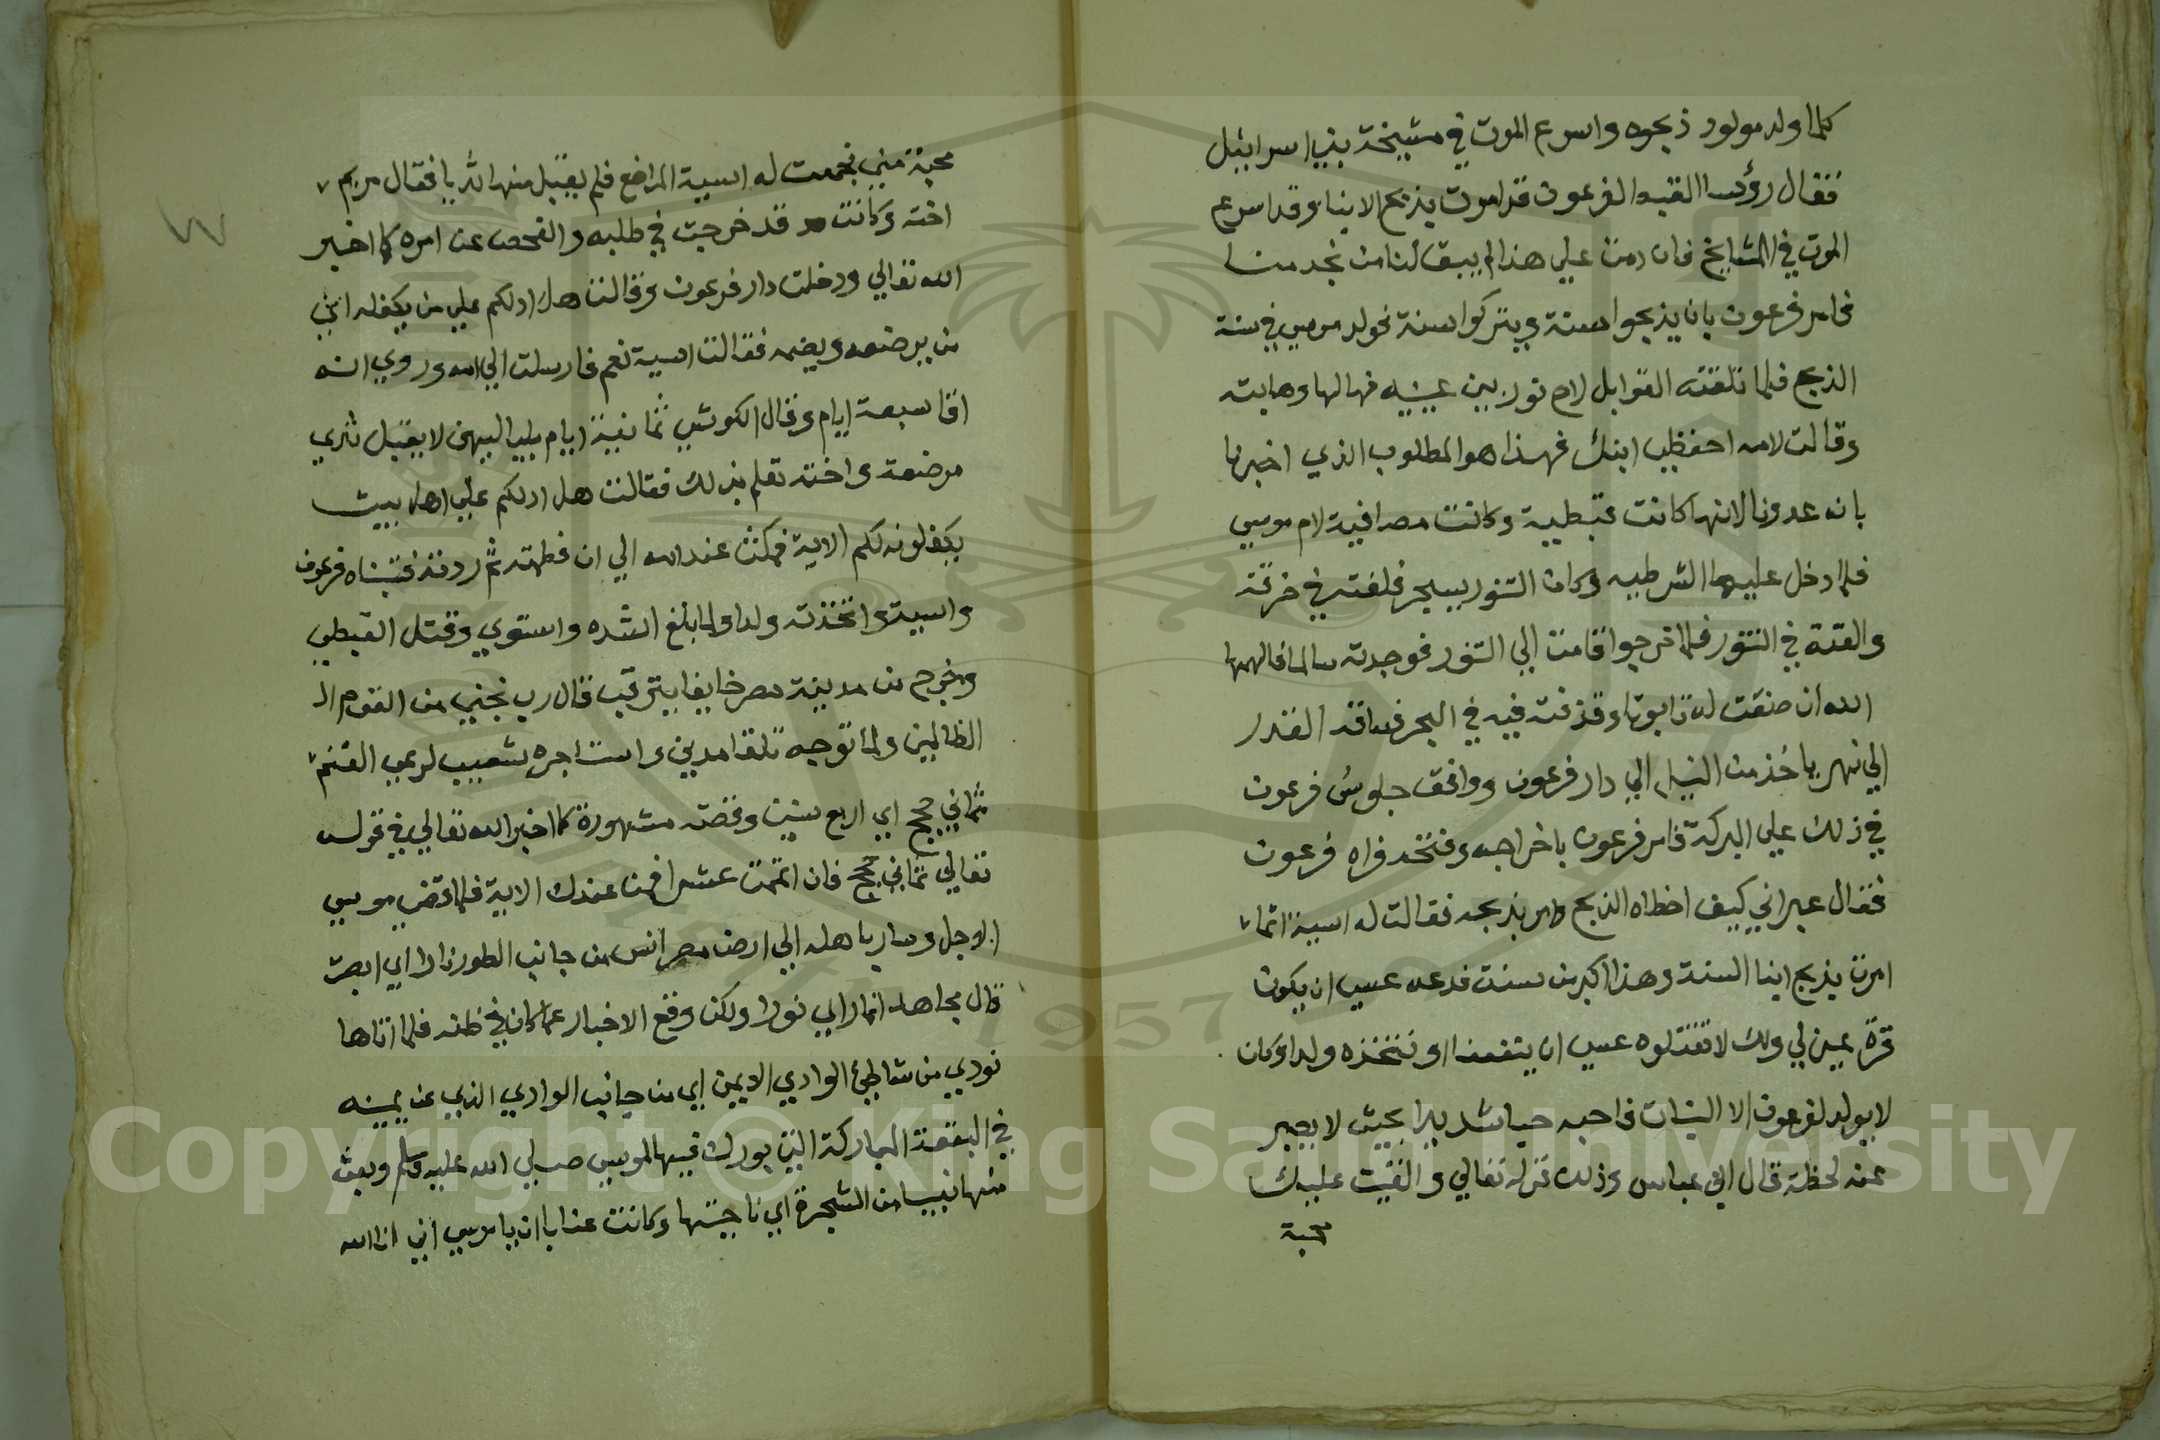 كلما ولد مولود ذبحوه واسرع الموت في مشيخة بني اسرائيل
فقال رؤسا القبط لفرعون قد امرت بذبح الابنا وقد اسرع
الموت في المشايخ فان دمت علي هذا لم يبق لنا من يخدمنا
فامر فرعون بان يذبحوا سنة ويتركوا سنة فولد موسي في سنة
الذبح فلما تلقته القوابل لاح نور بين عينيه فهالها وهابته
وقالت لامه احفظي ابنك فهذا هو المطلوب الذي اخبرنا
بانه عدونا لانها كانت قبطية وكانت مصافية لام موسي
فلما دخل عليها الشرطيه وكان التنور يسجر فلفته في خرقة
والقته في التنور فلما خرجوا قامت الي التنور فوجدته سالما فالهمها
الله ان صنعت له تابوتا وقذفته فيه في البحر فساقه القدر
الي نهر ياخذ من النيل الي دار فرعون ووافق جلوس فرعون
في ذلك علي البركة فامر فرعون باخراجه وفتحه فراه فرعون
فقال عبراني كيف اخطاه الذبح وامر بذبحه فقالت له اسية انما
امرت بذبح ابنا السنة وهذا اكبر من سنة فدعه عسي ان يكون
قرة عين لي ولك لا تقتلوه عسي ان ينفعنا او نتخذه ولدا وكان
لا يولد لفرعون الا البنات فاحبه حبا شديدا بحيث لا يصبر
عنه لحظة قال ابن عباس وذلك قوله تعالي والقيت عليك
محبة
محبة مني فجمعت له اسية المراضع فلم يقبل منهن ثديا فقال مريم
اخته وكانت قد خرجت في طلبه والفحص عن امره كما اخبر
الله تعالي ودخلت دار فرعون وقالت هل ادلكم علي من يكفله اي
من يرضعه ويضمه فقالت اسية نعم فارسلت الي امه وروي انه
اقام سبعة ايام وقال الكواشي ثمانية ايام بلياليهن لا يقبل ثدي
مرضعة واخته تعلم بذلك فقالت هل ادلكم علي اهل بيت
يكفلونه لكم الاية فمكث عند امه الي ان فطمته ثم ردته فتبناه فرعون
واسية واتخذته ولدا ولما بلغ اشده واستوي وقتل القبطي
وخرج من مدينة مصر خايفا يترقب قال رب نجني من القوم ال
الظالمين ولما توجه تلقا مدين واستاجره شعيب لرعي الغنم
ثماني حجج اي اربع سنين وقصته مشهورة كما اخبر الله تعالي في قوله
تعالي ثماني حجج فان اتممت عشرا فمن عندك الاية فلما قضي موسي
الاجل وسار باهله الي ارض مصر انس من جانب الطور نارا اي ابصر
قال مجاهد انما راي نورا ولكن وقع الاخبار عما كان في ظنه فلما اتاها
نودي من شاطئ الوادي الايمن اي من جانب الوادي الذي عن يمينه
في البقعة المباركة التي بورك فيها لموسي صلي الله عليه وسلم وبعث
منها نبيا من الشجرة اي ناحيتها وكانت عنابا ان يا موسي اني انا الله
Copyright © King Saud University
1957